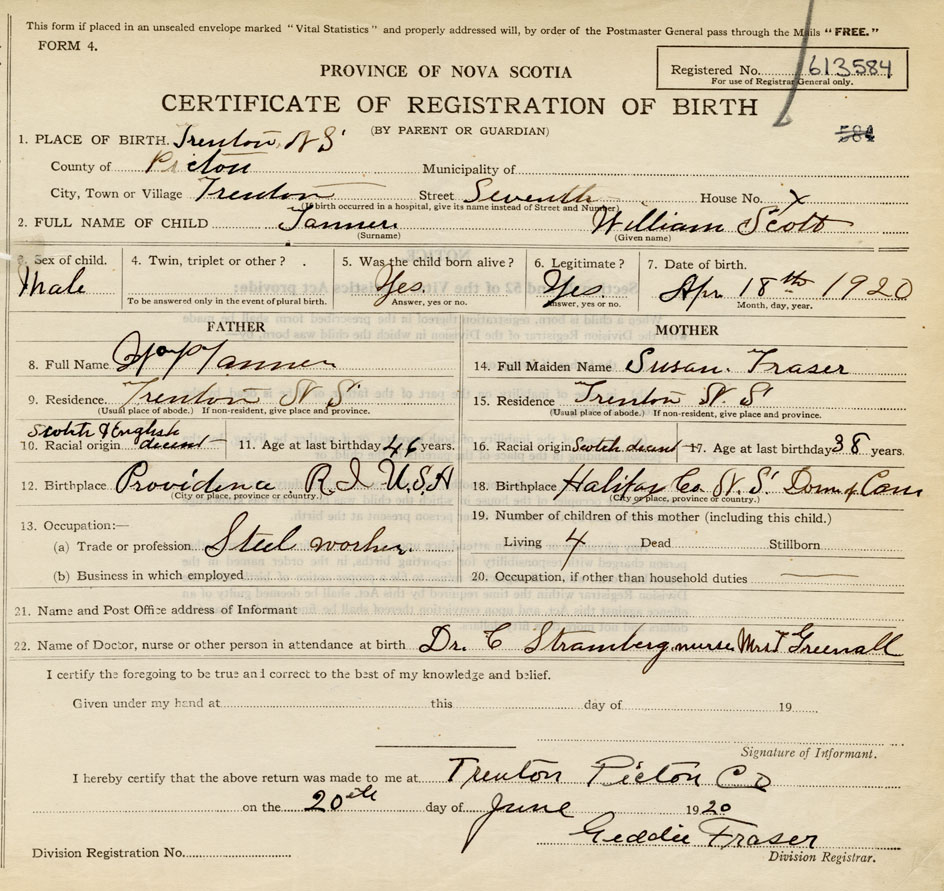 This form if placed in an unsealed envelope marked "Vital Statistics" and properly addressed will, by order of the Postmaster General pass through the Mails "FREE."
FORM 4.
PROVINCE OF NOVA SCOTIA
Registered No. 613584
For use of Registrar General only.
CERTIFICATE OF REGISTRATION OF BIRTH
(BY PARENT OR GUARDIAN)
584
1. PLACE OF BIRTH. Trenton, N S
County of Pictou Municipality of
City, Town or Village Trenton Street Seventh House No. X
(If birth occurred in a hospital, give its name instead of Street and Number)
2. FULL NAME OF CHILD Tanner William Scott
(Surname) (Given name)
3. Sex of child. Male
4. Twin, triplet or other?
To be answered only in the event of plural birth.
5. Was the child born alive? Yes.
Answer, yes or no.
6. Legitimate? Yes.
Answer, yes or no.
7. Date of birth. Apr 18th 1920
Month, day, year.
FATHER
8. Full Name Tanner
9. Residence. Trenton N S
(Usual place of abode.) If non-resident, give place and province.
10. Racial origin Scotch & English decent
11. Age at last birthday 46 years.
12. Birthplace Providence R I U.S.A
(City or place, province or country.)
13. Occupation:—
(a) Trade or profession Steel worker.
(b) Business in which employed
MOTHER
14. Full Maiden Name Susan. Fraser
15. Residence Trenton N. S
(Usual place of abode.) If non-resident, give place and province.
16. Racial origin Scotch decent
17. Age at last birthday 38 years.
18. Birthplace Halifax Co. N. S. Dom of Can
(City or place, province or country.)
19. Number of children of this mother (including this child.)
Living 4 Dead Stillborn
20. Occupation, if other than household duties
21. Name and Post Office address of Informant
22. Name of Doctor, nurse or other person in attendance at birth Dr. C Stramberg nurse Mrs T Greenall
I certify the foregoing to be true and correct to the best of my knowledge and belief.
Given under my hand at this day of 19
Signature of Informant.
I hereby certify that the above return was made to me at Trenton Pictou Co
on the 20th day of June 1920
Geddie Fraser
Division Registration No. Division Registrar.